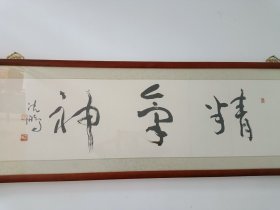 精气神
沈鹏